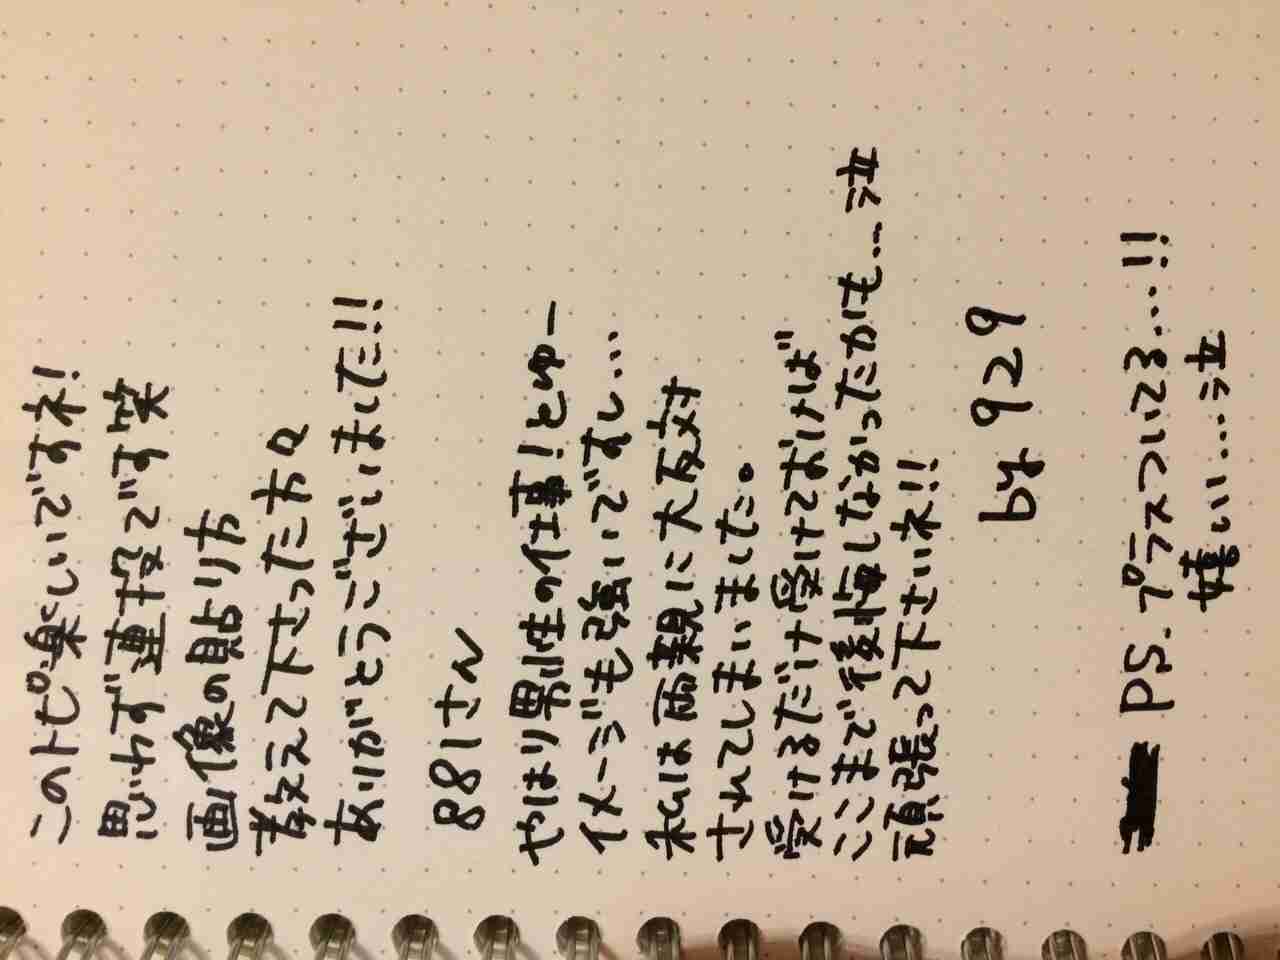 このトピ楽しいですネ!
思わず連投です笑
画像の貼り方
教えて下さった方々
ありがとうございました!!
881さん
やはり男性の仕事!とゆー
イメージも強いですし…
私は両親に大反対
されてしまいました。
受けるだけ受けておけば
ここまで後悔しなかったかも…泣
頑張って下さいネ!!
by 929
PS. プラスついてる…!!
嬉しい…泣